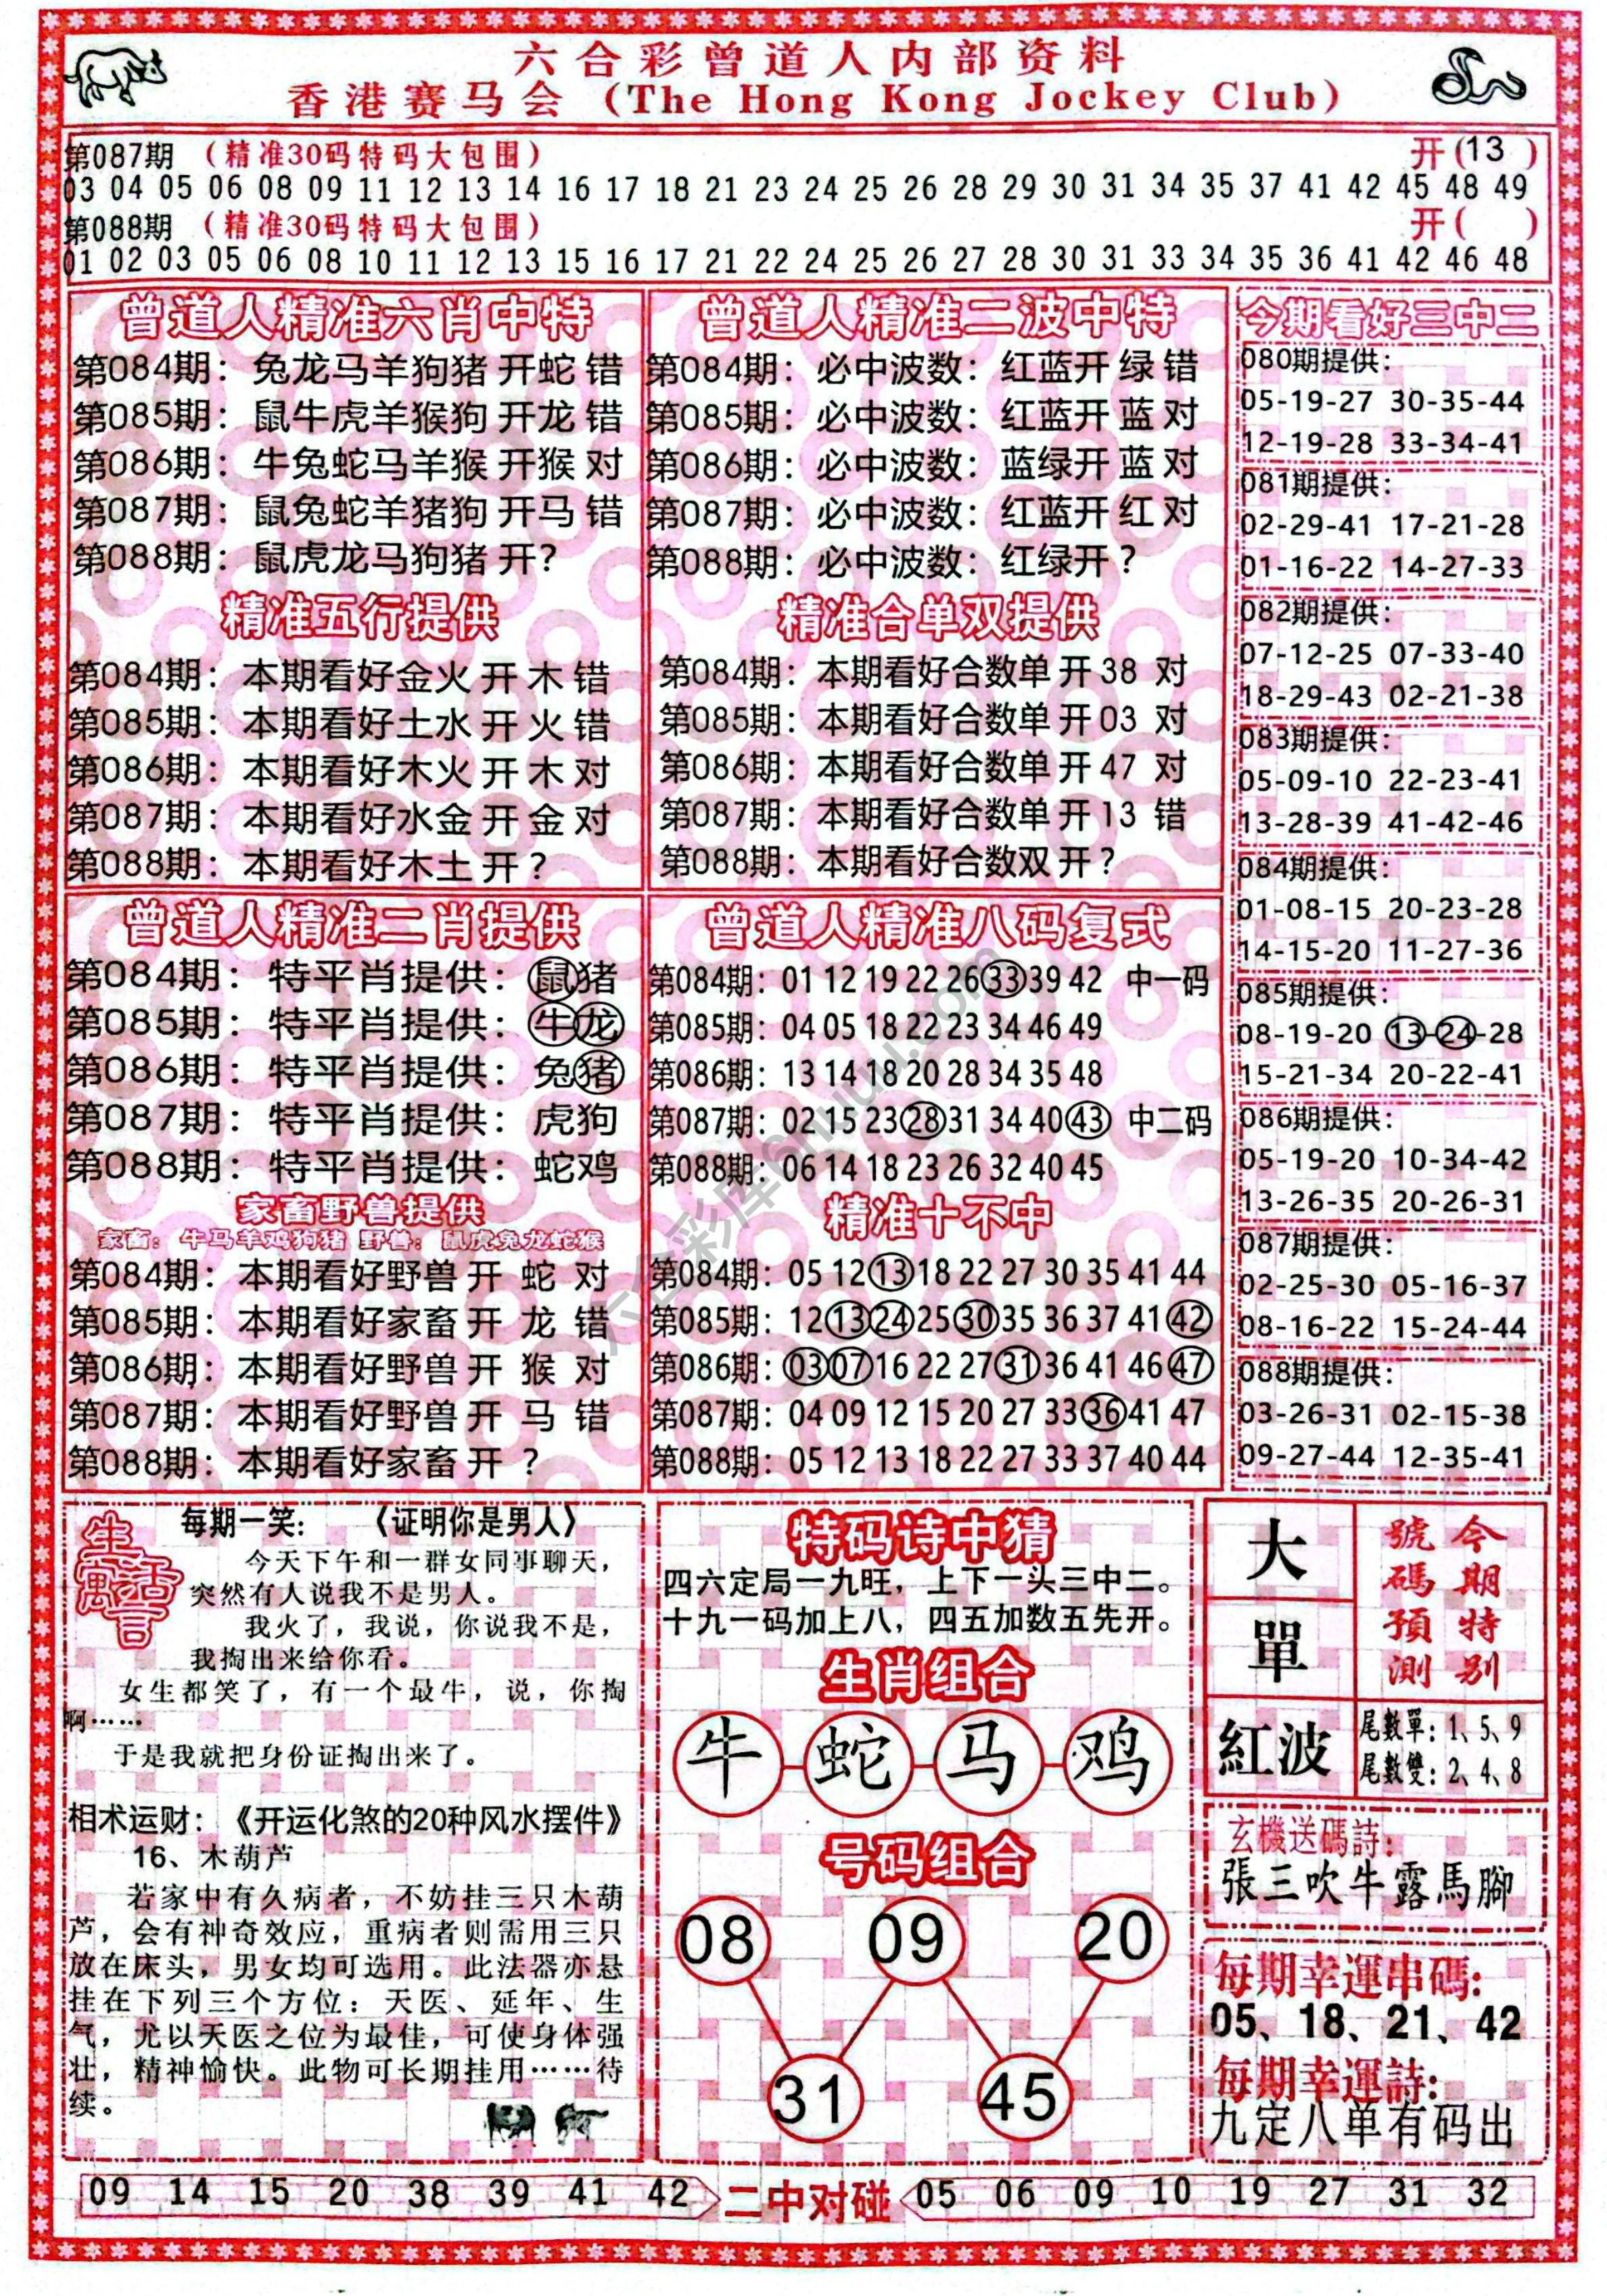 六合彩曾道人内部资料
香港赛马会(The Hong Kong Jockey Club)
第087期(精准30码特码大包围) 开(13)
03 04 05 06 08 09 11 12 13 14 16 17 18 21 23 24 25 26 28 29 30 31 34 35 37 41 42 45 48 49
第088期(精准30码特码大包围) 开( )
01 02 03 05 06 08 10 11 12 13 15 16 17 21 22 24 25 26 27 28 30 31 33 34 35 36 41 42 46 48
曾道人精准六肖中特
第084期:兔龙马羊狗猪 开蛇 错
第085期:鼠牛虎羊猴狗 开龙 错
第086期:牛兔蛇马羊猴 开猴 对
第087期:鼠兔蛇羊猪狗 开马 错
第088期:鼠虎龙马狗猪 开?
精准五行提供
第084期:本期看好金火 开 木 错
第085期:本期看好土水 开 火 错
第086期:本期看好木火 开 木 对
第087期:本期看好水金 开 金 对
第088期:本期看好木土 开 ?
曾道人精准二波中特
第084期:必中波数:红蓝开 绿 错
第085期:必中波数:红蓝开 蓝 对
第086期:必中波数:蓝绿开 蓝 对
第087期:必中波数:红蓝开 红 对
第088期:必中波数:红绿开?
精准合单双提供
第084期:本期看好合数单 开 38 对
第085期:本期看好合数单 开 03 对
第086期:本期看好合数单 开 47 对
第087期:本期看好合数单 开 13 错
第088期:本期看好合数双 开?
今期看好三中二
080期提供:
05-19-27 30-35-44
12-19-28 33-34-41
081期提供:
02-29-41 17-21-28
01-16-22 14-27-33
082期提供:
07-12-25 07-33-40
18-29-43 02-21-38
083期提供:
05-09-10 22-23-41
13-28-39 41-42-46
084期提供:
01-08-15 20-23-28
14-15-20 11-27-36
085期提供:
08-19-20 13-24-28
15-21-34 20-22-41
086期提供:
05-19-20 10-34-42
13-26-35 20-26-31
087期提供:
02-25-30 05-16-37
08-16-22 15-24-44
088期提供:
03-26-31 02-15-38
09-27-44 12-35-41
曾道人精准二肖提供
第084期:特平肖提供:鼠猪
第085期:特平肖提供:牛龙
第086期:特平肖提供:兔猪
第087期:特平肖提供:虎狗
第088期:特平肖提供:蛇鸡
家畜野兽提供
家畜:牛马羊鸡狗猪 野兽:鼠虎兔龙蛇猴
第084期:本期看好野兽 开 蛇 对
第085期:本期看好家畜 开 龙 错
第086期:本期看好野兽 开 猴 对
第087期:本期看好野兽 开 马 错
第088期:本期看好家畜 开 ?
曾道人精准八码复式
第084期:01 12 19 22 26 33 39 42 中一码
第085期:04 05 18 22 23 34 46 49
第086期:13 14 18 20 28 34 35 48
第087期:02 15 23 28 31 34 40 43 中二码
第088期:06 14 18 23 26 32 40 45
精准十不中
第084期:05 12 13 18 22 27 30 35 41 44
第085期:12 13 24 25 30 35 36 37 41 42
第086期:03 07 16 22 27 31 36 41 46 47
第087期:04 09 12 15 20 27 33 36 41 47
第088期:05 12 13 18 22 27 33 37 40 44
六合彩库6huu.com
生活寓言
每期一笑: 《证明你是男人》
今天下午和一群女同事聊天,
突然有人说我不是男人。
我火了,我说,你说我不是,
我掏出来给你看。
女生都笑了,有一个最牛,说,你掏
啊……
于是我就把身份证掏出来了。
相术运财:《开运化煞的20种风水摆件》
16、木葫芦
若家中有久病者,不妨挂三只木葫
芦,会有神奇效应,重病者则需用三只
放在床头,男女均可选用。此法器亦悬
挂在下列三个方位:天医、延年、生
气,尤以天医之位为最佳,可使身体强
壮,精神愉快。此物可长期挂用……待
续。
特码诗中猜
四六定局一九旺,上下一头三中二。
十九一码加上八,四五加数五先开。
生肖组合
牛 蛇 马 鸡
号码组合
08 09 20
31 45
大
單
紅波
今期特别
號碼預測
尾數單:1、5、9
尾數雙:2、4、8
玄機送碼詩:
張三吹牛露馬腳
每期幸運串碼:
05、18、21、42
每期幸運詩:
九定八单有码出
09 14 15 20 38 39 41 42 二中对碰 05 06 09 10 19 27 31 32